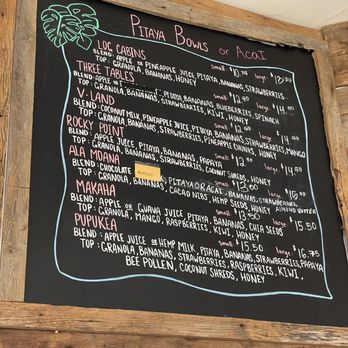 PITAYA BOWLS or ACAI
LOG CABINS small: $10.75 large: $12.00
BLEND: APPLE or PINEAPPLE JUICE, PITAYA, BANANAS, STRAWBERRIES
TOP: GRANOLA, BANANAS, HONEY
THREE TABLES small: $12 large: $14.00
BLEND: APPLE or PITAYA, BANANAS, BLUEBERRIES, SPINACH
TOP: GRANOLA, BANANAS, STRAWBERRIES, KIWI, HONEY
V-LAND small: $12.00 large: $14.00
BLEND: COCONUT MILK, PINEAPPLE JUICE, PITAYA, BANANAS, STRAWBERRIES, MANGO
TOP: GRANOLA, BANANAS, STRAWBERRIES, PINEAPPLE CHUNKS, HONEY
ROCKY POINT large: $14.00
BLEND: APPLE JUICE, PITAYA, BANANAS, PAPAYA
TOP: GRANOLA, BANANAS, STRAWBERRIES, COCONUT SHREDS, HONEY
ALA MOANA small: 13.00 large:
BLEND: CHOCOLATE PITAYA OR ACAI, BANANAS, STRAWBERRIES, ALMOND BUTTER
TOP: GRANOLA, BANANAS, CACAO NIBS, HEMP SEEDS, HONEY
MAKAHA small: 13.50 large: 15.50
BLEND: APPLE or GUAVA JUICE, PITAYA, BANANAS, CHIA SEEDS
TOP: GRANOLA, MANGO, RASPBERRIES, KIWI, HONEY
PUPUKEA small: $15.50 large: $16.75
BLEND: APPLE JUICE or HEMP MILK, PITAYA, BANANAS, STRAWBERRIES, PAPAYA
TOP: GRANOLA, BANANAS, STRAWBERRIES, RASPBERRIES, KIWI,
BEE POLLEN, COCONUT SHREDS, HONEY